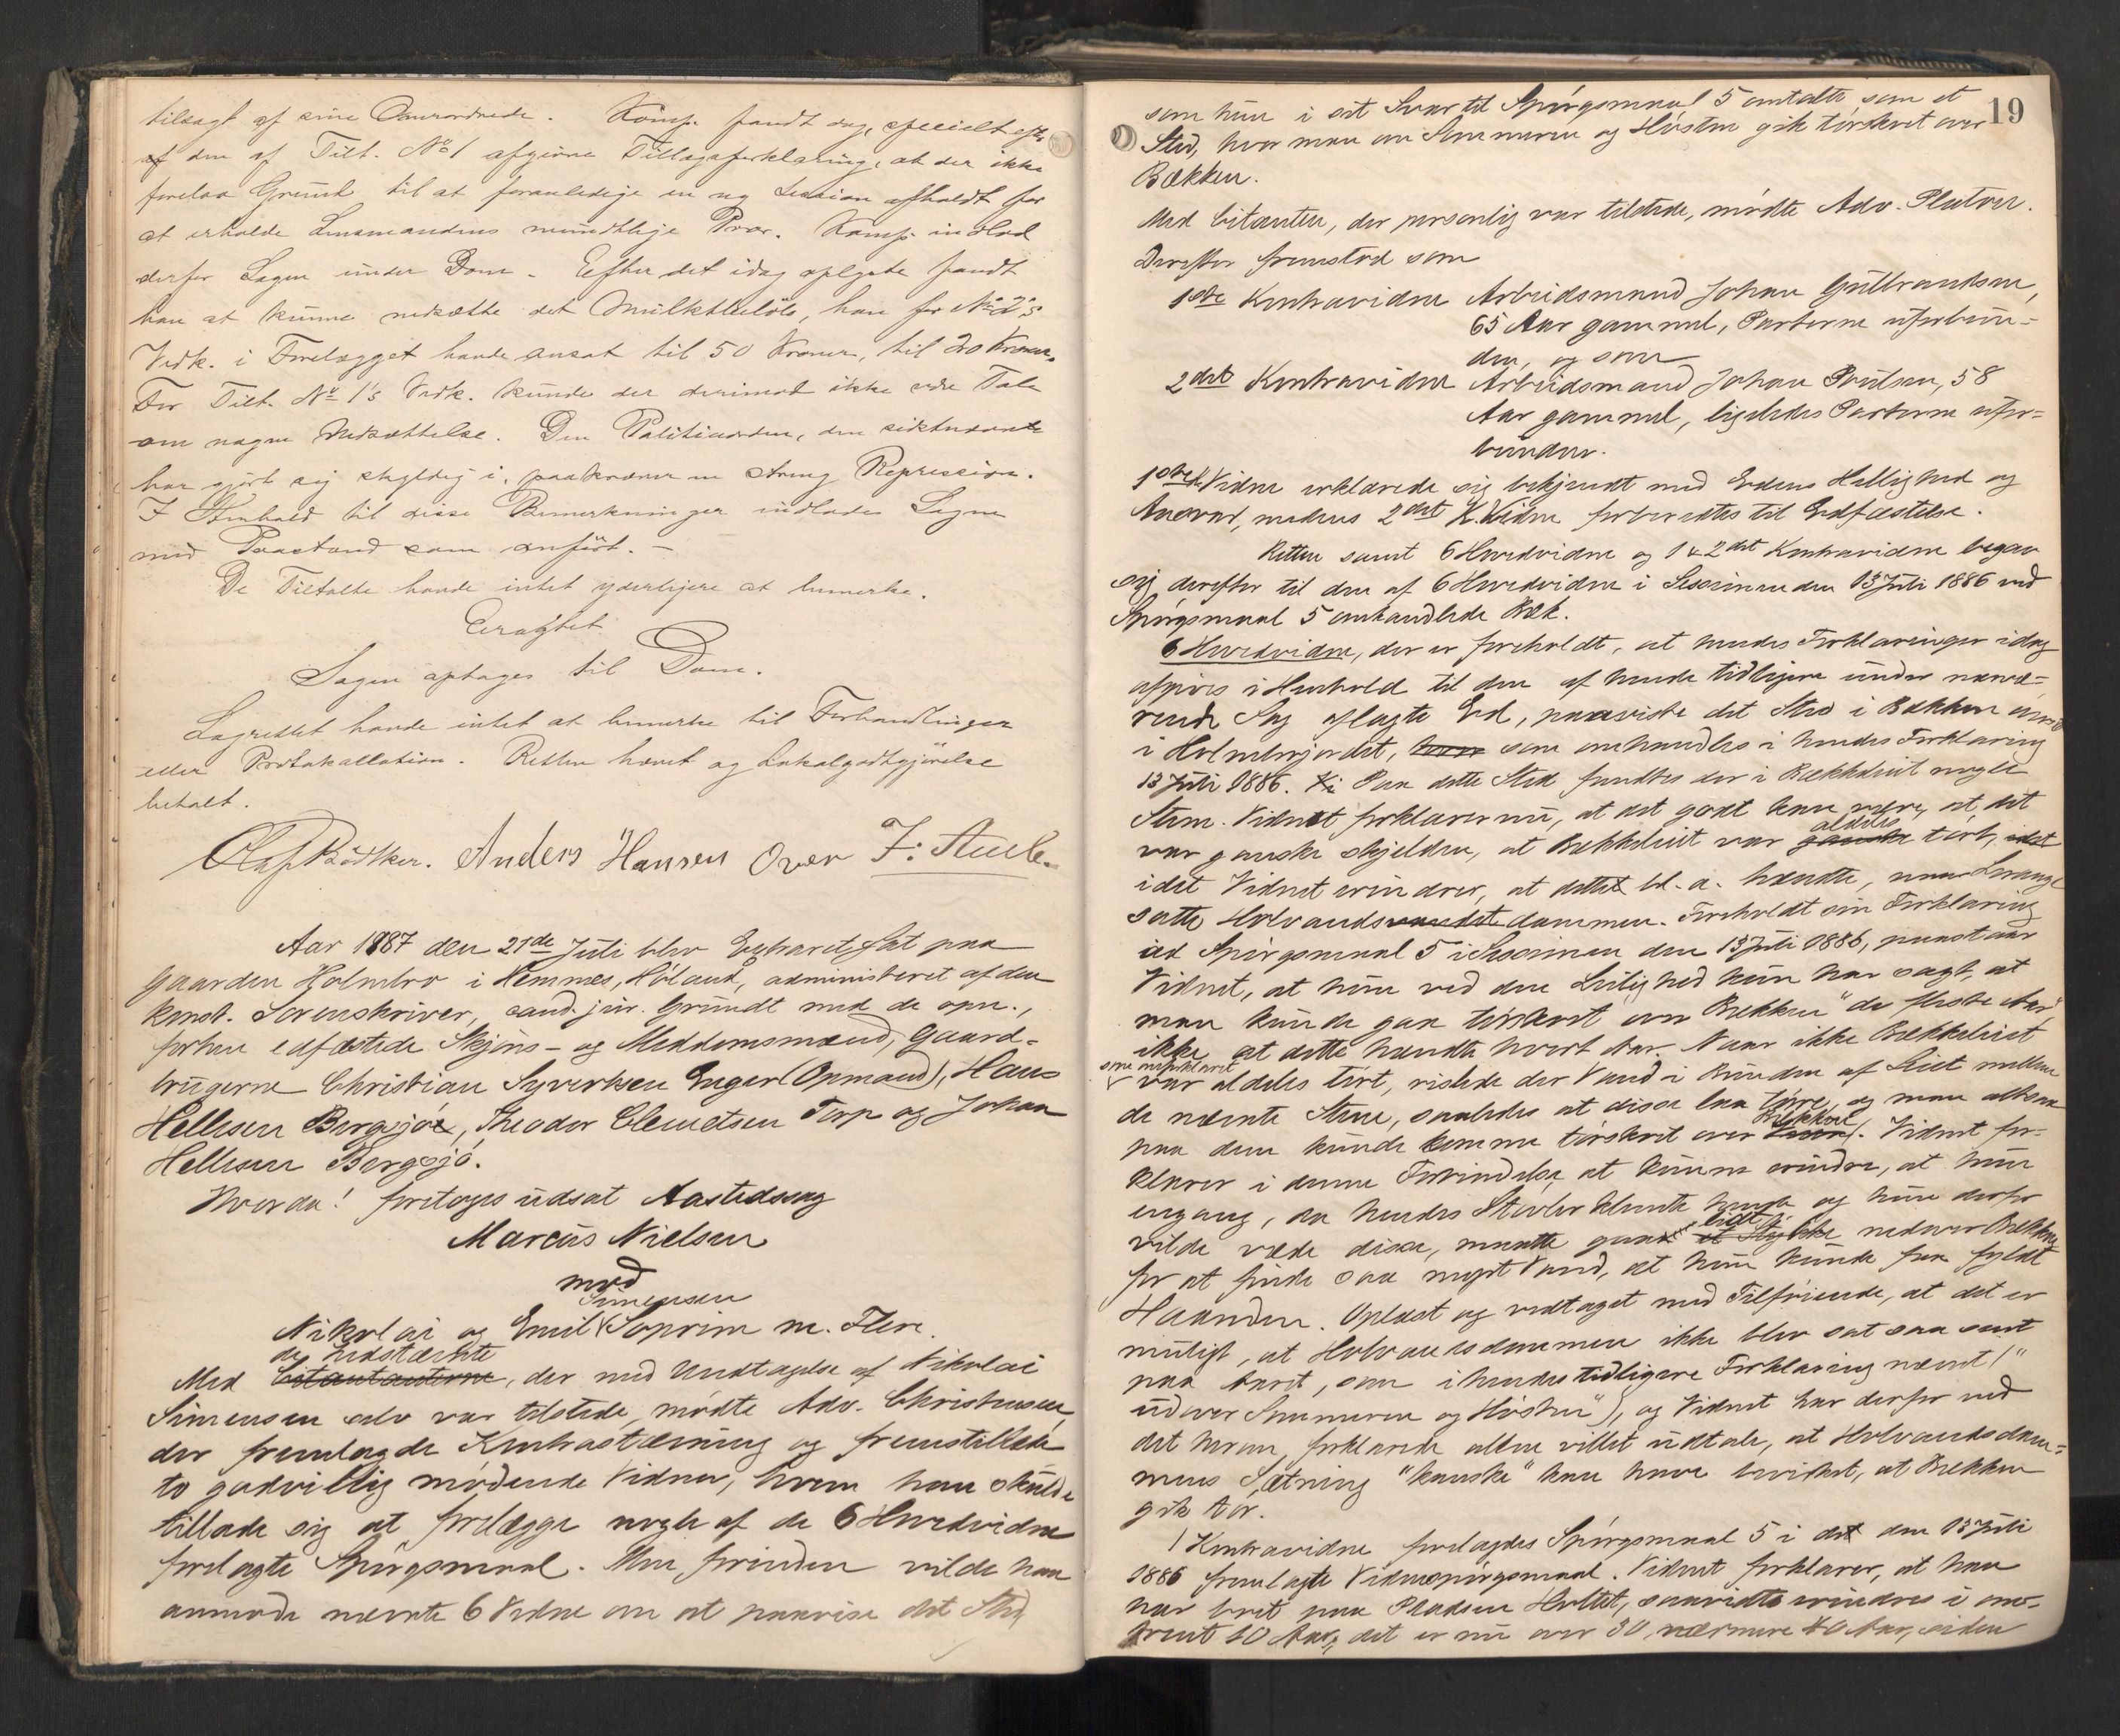 tilsagt af sine Overordnede. Komp. fandt dog, specielt efter
af den af Tilt. No 1 afgivne Tillægsforklaring, at der ikke
forelaa Grund til at foranledige en ny Session afholdt for
at erholde Lensmandens mundtlige Prov. Komp. indlod
derfor Sagen under Dom. Efter det idag oplyste fandt
han at kunne nedsætte det Mulktbeløb, han for No 2's
Vedk. i Forelægget havde ansat til 50 Kroner, til 20 Kroner.
For Tilt. No 1's Vedk. kunde der derimod ikke være Tale
om nogen Nedsættelse. Den Politiuorden, den sidstnævnte
har gjort sig skyldig i, paakræver en streng Repression.
I Henhold til disse Bemerkninger indlades Sagen
med Paastand som anført. -
De Tiltalte havde intet yderligere at bemerke.
Eragtet
Sagen optages til Dom.
Lagrettet havde intet at bemerke til Forhandlingen
eller Protokollation. Retten hævet og Lokalgodtgjørelse
betalt.
Olaf Bødtker. Anders Hansen Over F. Aueb.
Aar 1887 den 21de Juli blev Extraret sat paa
Gaarden Holmbro i Hemnes, Høland, administreret af den
konst. Sorenskriver, cand. jur. Grundt med de opn.,
forhen edfæstede Skjøns- og Meddomsmænd, Gaard-
brugerne Christian Syversen Enger (Opmand), Hans
Hellesen Bergsjø, Theodor Clemetsen Torp og Johan
Hellesen Bergsjø.
Hvorda! foretoges udsat Aastedssag
Marcus Nielsen
mod
Simensen
Nikolai og Emil Soprim m. Flere.
de Indstævnte
Med Citantanterne, der med Undtagelse af Nikolai
Simensen selv var tilstede, mødte Adv. Christensen,
der fremlagde Kontrastævning og fremstillede
to godvillig mødende Vidner, hvem han skulde
tillade sig at forelægge nogle af de 6 Hovedvidne
forelagte Spørgsmaal. Men forinden vilde han
anmode nævnte 6 Vidne om at paavise det Sted,
19
som hun i sit Svar til Spørgsmaal 5 omtalte som et
Sted, hvor man om Sommeren og Høsten gik tørskoet over
Bækken.
Med Citanten, der personlig var tilstede, mødte Adv. Platou.
Derefter fremstod som
1ste Kontravidne Arbeidsmand Johan Gulbrandsen,
65 Aar gammel, Parterne uforbun-
den, og som
2det Kontravidne Arbeidsmand Johan Poulsen, 58
Aar gammel, ligeledes Parterne ufor-
bunden.
1ste K. Vidne erklærede sig bekjendt med Edens Hellighed og
Ansvar, medens 2det K. Vidne forberedtes til Edfæstelse.
Retten samt 6 Hovedvidne og 1 & 2det Kontravidne begav
sig derefter til den af 6 Hovedvidne i Sessionen den 13 Juli 1886 ved
Spørgsmaal 5 omhandlede Bæk.
6 Hovedvidne, der er foreholdt, at hendes Forklaringer idag
afgives i Henhold til den af hende tidligere under nærvæ-
rende Sag aflagte Ed, paaviste det Sted i Bækken
i Holmbrojordet, som omhandles i hendes Forklaring
13 Juli 1886. Paa dette Sted fandtes der i Bækkeleiet nogle
Stene. Vidnet forklarer nu, at det godt kan være, at det
aldeles
var ganske skjelden, at Bækkeleiet var ganske tørt, idet
idet Vidnet erindrer, at dette bl. a. hændte, naar Lorange
satte Holvandsvandet dammen. Foreholdt sin Forklaring
ad Spørgsmaal 5 i Sessionen den 13 Juli 1886, paastaar
Vidnet, at hun ved den Leilighed kun har sagt, at
man kunde gaa tørskoet over Bækken "de fleste Aar",
ikke at dette hændte hvert Aar. Naar ikke Bækkeleiet
som anført
var aldeles tørt, rislede der Vand i Bunden af Leiet mellem
de nævnte Stene, saaledes at disse laa tørre, og man altsaa
Bækken
paa dem kunde komme tørskoet over. Vidnet for-
klarer i denne Forbindelse at kunne erindre, at hun
engang, da hendes Støvler klemte hende og hun derfor
lidt
vilde væde disse, maatte gaa et Stykke nedover Bækken
for at finde saa meget Vand, at hun kunde faa fyldt
Haanden. Oplæst og vedtaget med Tilføiende, at det er
muligt, at Holvandsdammen ikke blev sat saa sent
paa Aaret, som i hendes tidligere Forklaring nævnt ("
udover Sommeren og Høsten"), og Vidnet har derfor ved
det herom forklarede alene villet udtale, at Holvandsdam-
mens Sætning "kanske" kan have bevirket, at Bækken
gik tør.
1 Kontravidne forelagdes Spørgsmaal 5 i det den 13 Juli
1886 fremlagte Vidnespørgsmaal. Vidnet forklarer, at han
har boet paa Pladsen Holtet, saavidt erindres i om-
trent 10 Aar; det er nu over 30, nærmere 40 Aar, siden